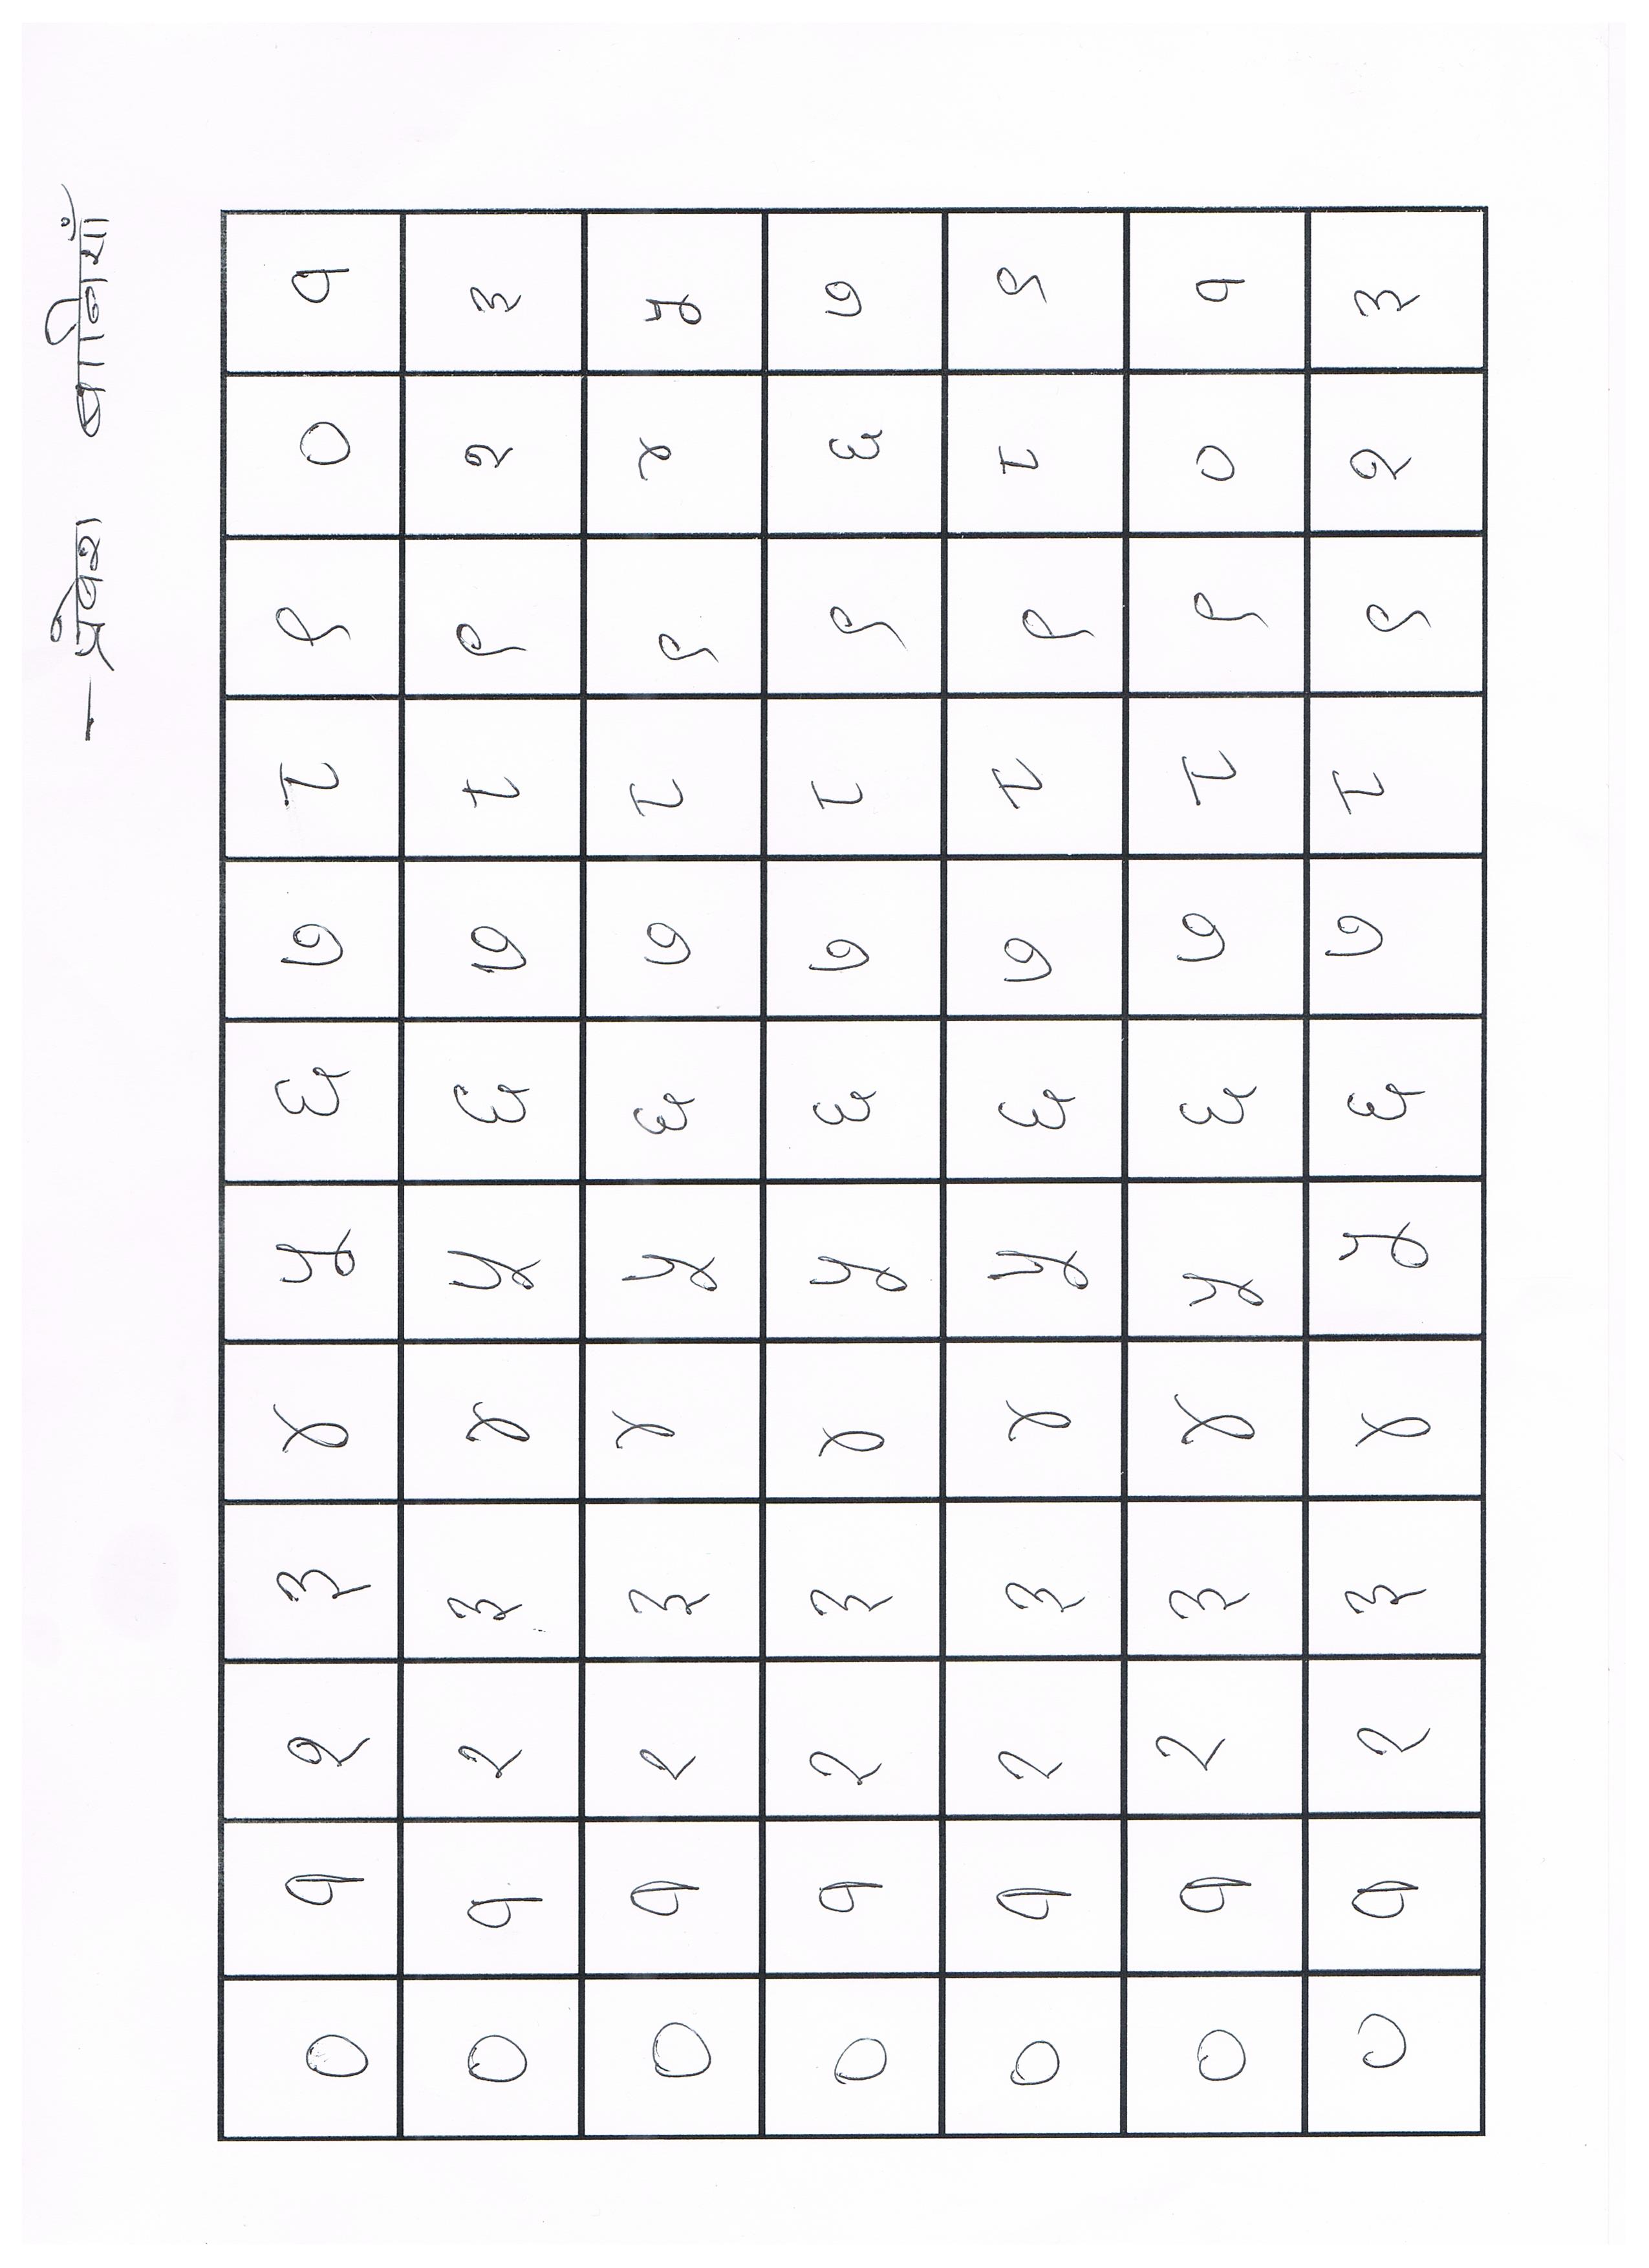 — प्रवेश बानियाँ
० १ २ ३ ४ ५ ६ ७ ८ ९ ० १
० १ २ ३ ४ ५ ६ ७ ८ ९ २ ३
० १ २ ३ ४ ५ ६ ७ ८ ९ ४ ५
० १ २ ३ ४ ५ ६ ७ ८ ९ ६ ७
० १ २ ३ ४ ५ ६ ७ ८ ९ ८ ९
० १ २ ३ ४ ५ ६ ७ ८ ९ ० १
० १ २ ३ ४ ५ ६ ७ ८ ९ २ ३